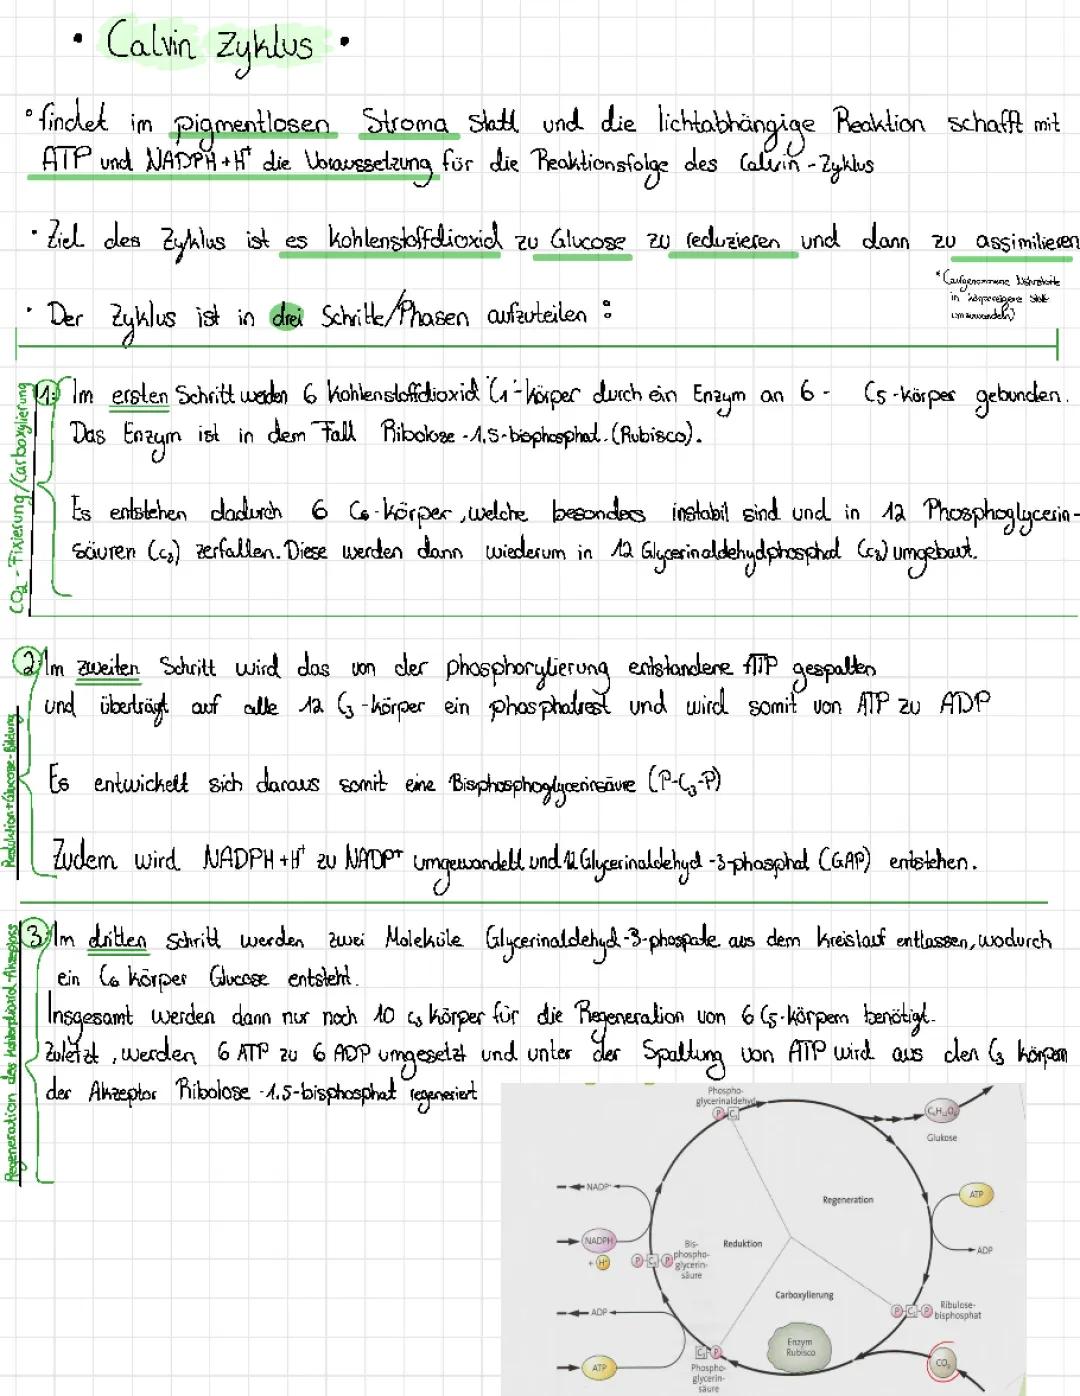 • Calvin Zyklus •
• findet im pigmentlosen Stroma statt und die lichtabhängige Reaktion schafft mit
ATP und NADPH+H⁺ die Voraussetzung für die Reaktionsfolge des Calvin-Zyklus
• Ziel des Zyklus ist es Kohlenstoffdioxid zu Glucose zu reduzieren und dann zu assimilieren
*(aufgenommene Nährstoffe
in körpereigene Stoffe
umzuwandeln)
• Der Zyklus ist in drei Schritte/Phasen aufzuteilen:
CO₂-Fixierung/Carboxylierung
1. Im ersten Schritt werden 6 Kohlenstoffdioxid C₁-körper durch ein Enzym an 6- C5-körper gebunden.
Das Enzym ist in dem Fall Ribolose-1,5-bisphosphat. (Rubisco).
Es entstehen dadurch 6 C6-körper, welche besonders instabil sind und in 12 Phosphoglycerin-
säuren (C₃) zerfallen. Diese werden dann wiederum in 12 Glycerinaldehydphosphat (C₃) umgebaut.
Reduktion+Glucose-Bildung
2. Im zweiten Schritt wird das von der phosphorylierung entstandene ATP gespalten
und überträgt auf alle 12 C₃-körper ein phosphatrest und wird somit von ATP zu ADP
Es entwickelt sich daraus somit eine Bisphosphoglycerinsäure (P-C₃-P)
Zudem wird NADPH+H⁺ zu NADP⁺ umgewandelt und 12 Glycerinaldehyd-3-phosphat (GAP) entstehen.
Regeneration des Kohlendioxid-Akzeptors
3. Im dritten Schritt werden zwei Moleküle Glycerinaldehyd-3-phospate aus dem Kreislauf entlassen, wodurch
ein C6 körper Glucose entsteht.
Insgesamt werden dann nur noch 10 C₃ körper für die Regeneration von 6 C5-körpern benötigt.
Zuletzt, werden 6 ATP zu 6 ADP umgesetzt und unter der Spaltung von ATP wird aus den C₃ körpern
der Akzeptor Ribolose-1.5-bisphosphat regeneriert
Phospho-
glycerinaldehyd
P C₃
C₆H₁₂O₆
Glukose
NADP⁺
Regeneration
ATP
NADPH
+ H⁺
Bis-
phospho-
glycerin-
säure
P C₃ P
Reduktion
ADP
Carboxylierung
ADP
P C₅ P
Ribulose-
bisphosphat
Enzym
Rubisco
C₃ P
ATP
Phospho-
glycerin-
säure
CO₂